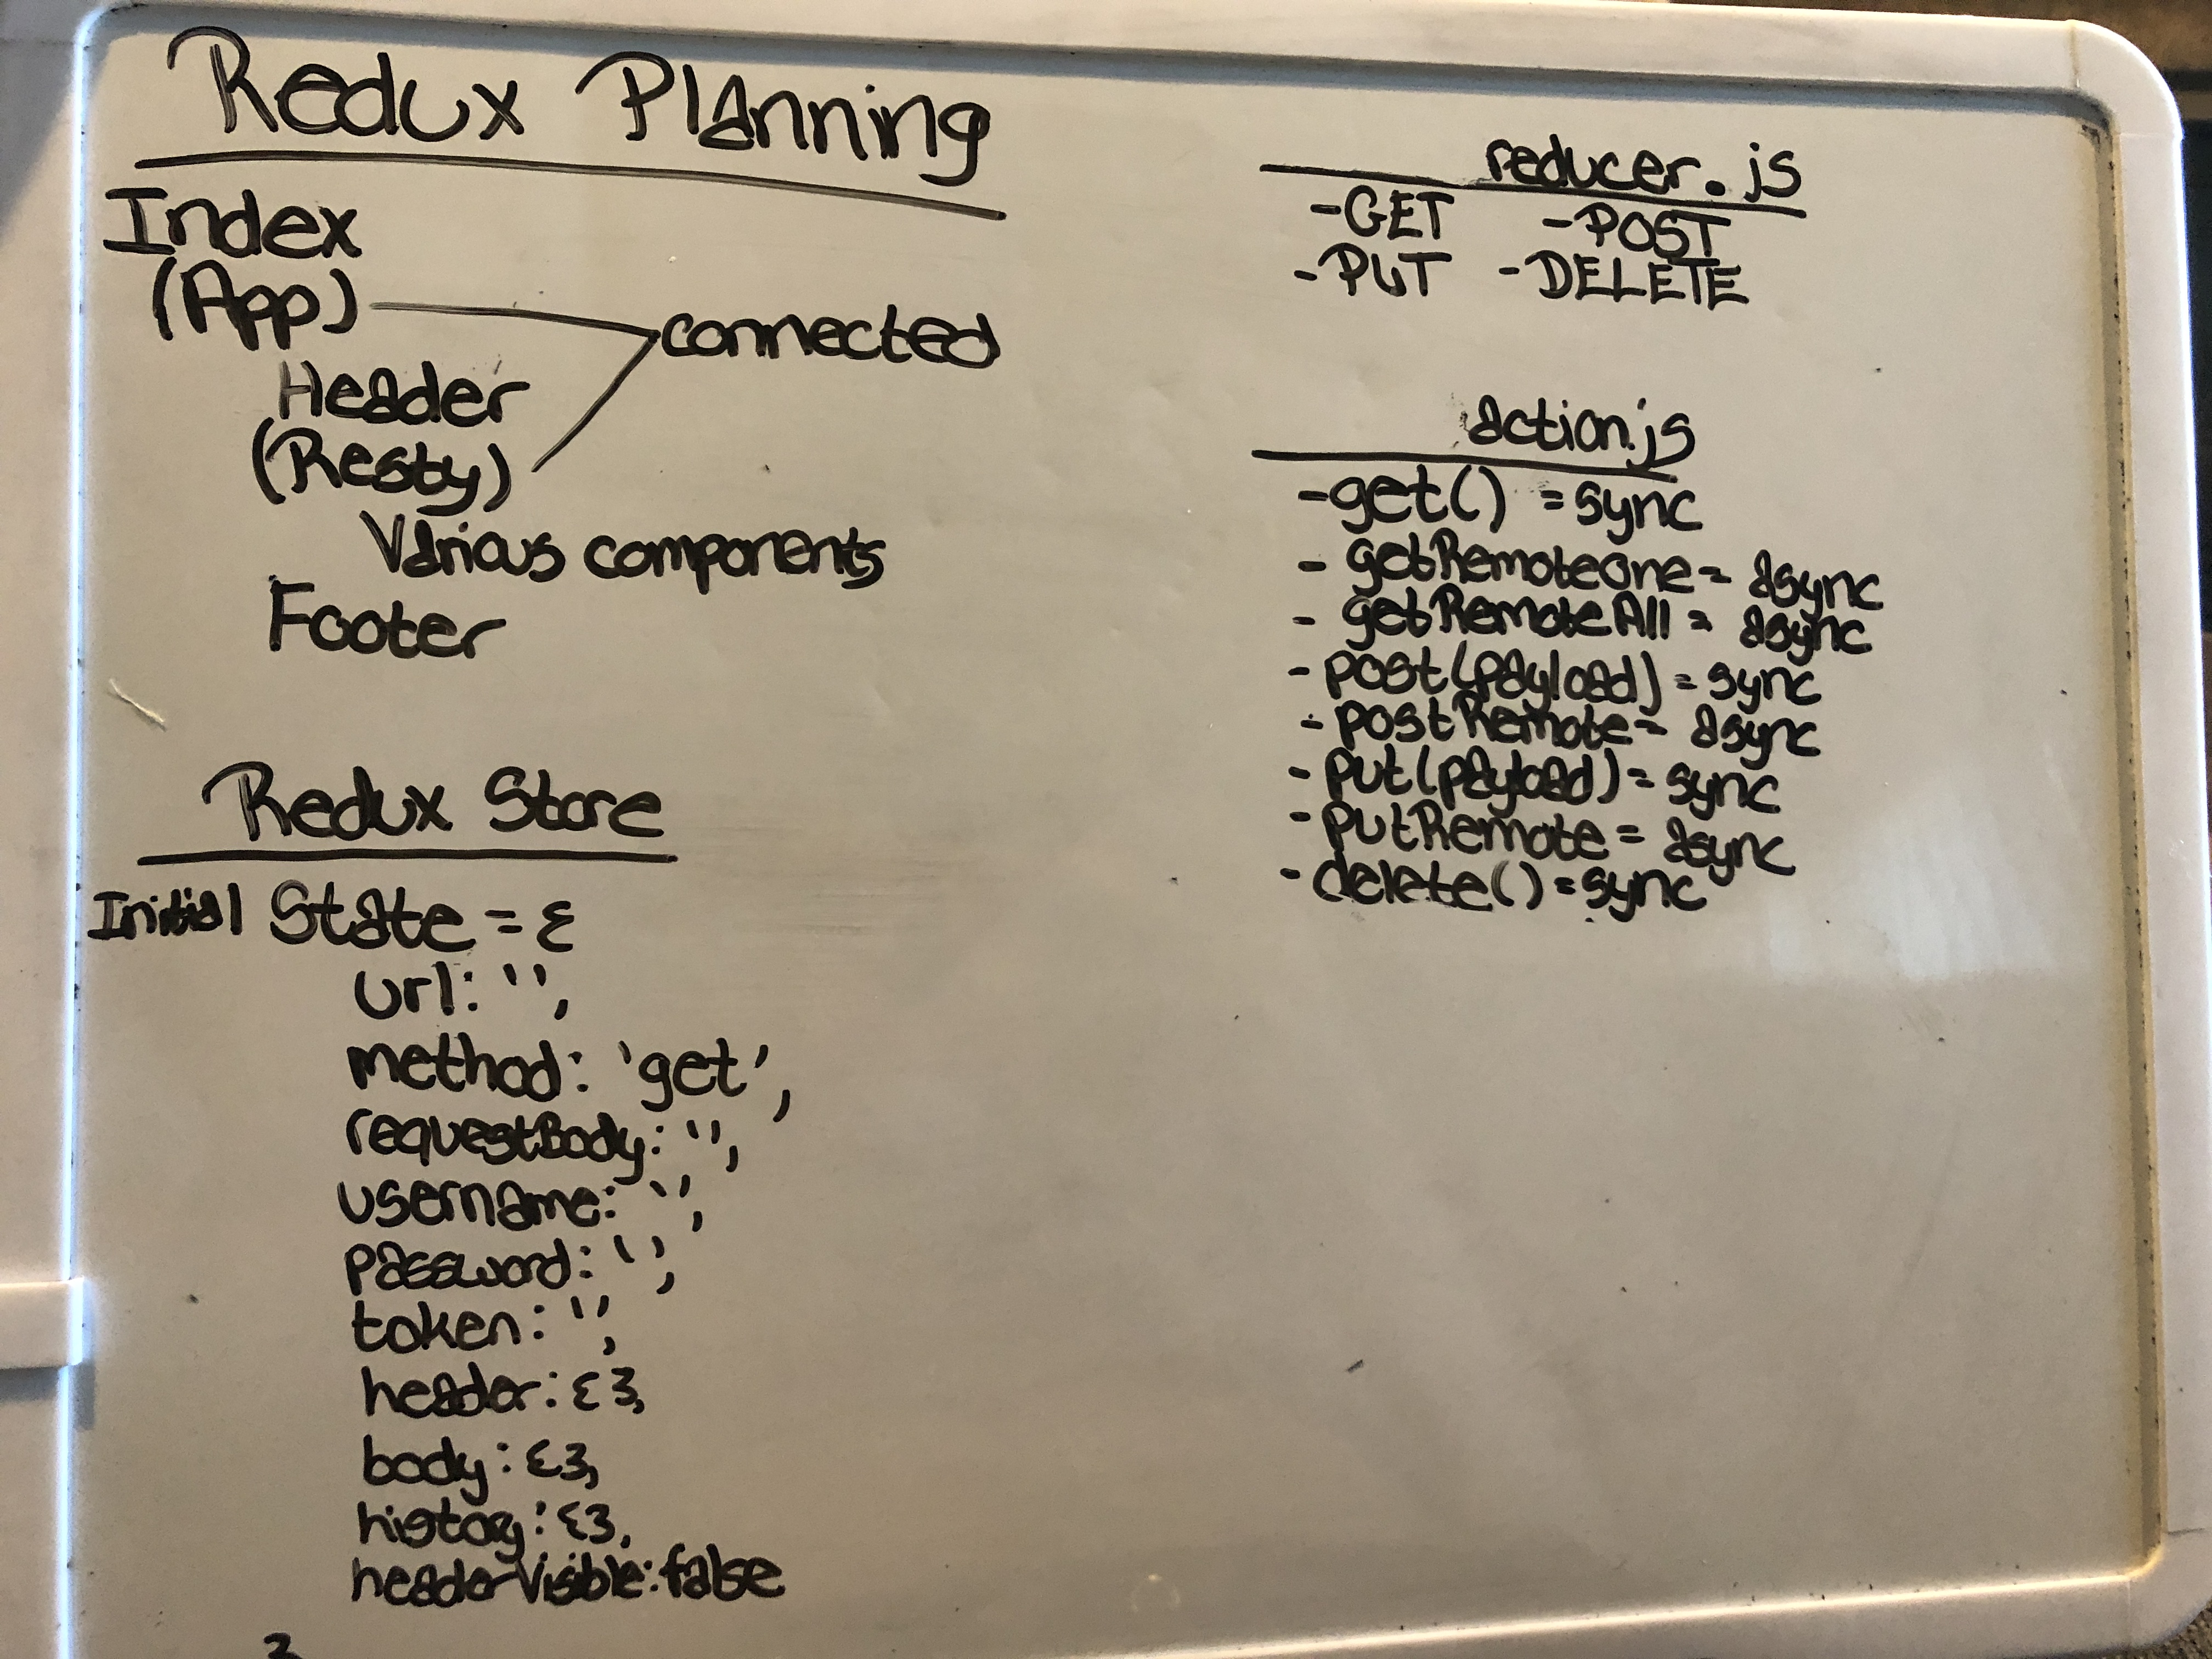 Redux Planning
Index
(App)
connected
Header
(Resty)
Various components
Footer
Redux Store
Initial State = {
url: '',
method: 'get',
requestBody: '',
username: '',
password: '',
token: '',
header: {},
body: {},
history: {},
headerVisible: false
}
reducer.js
-GET -POST
-PUT -DELETE
action.js
-get() = sync
- getRemoteOne = async
- getRemoteAll = async
- post(payload) = sync
- postRemote = async
- put(payload) = sync
- putRemote = async
- delete() = sync